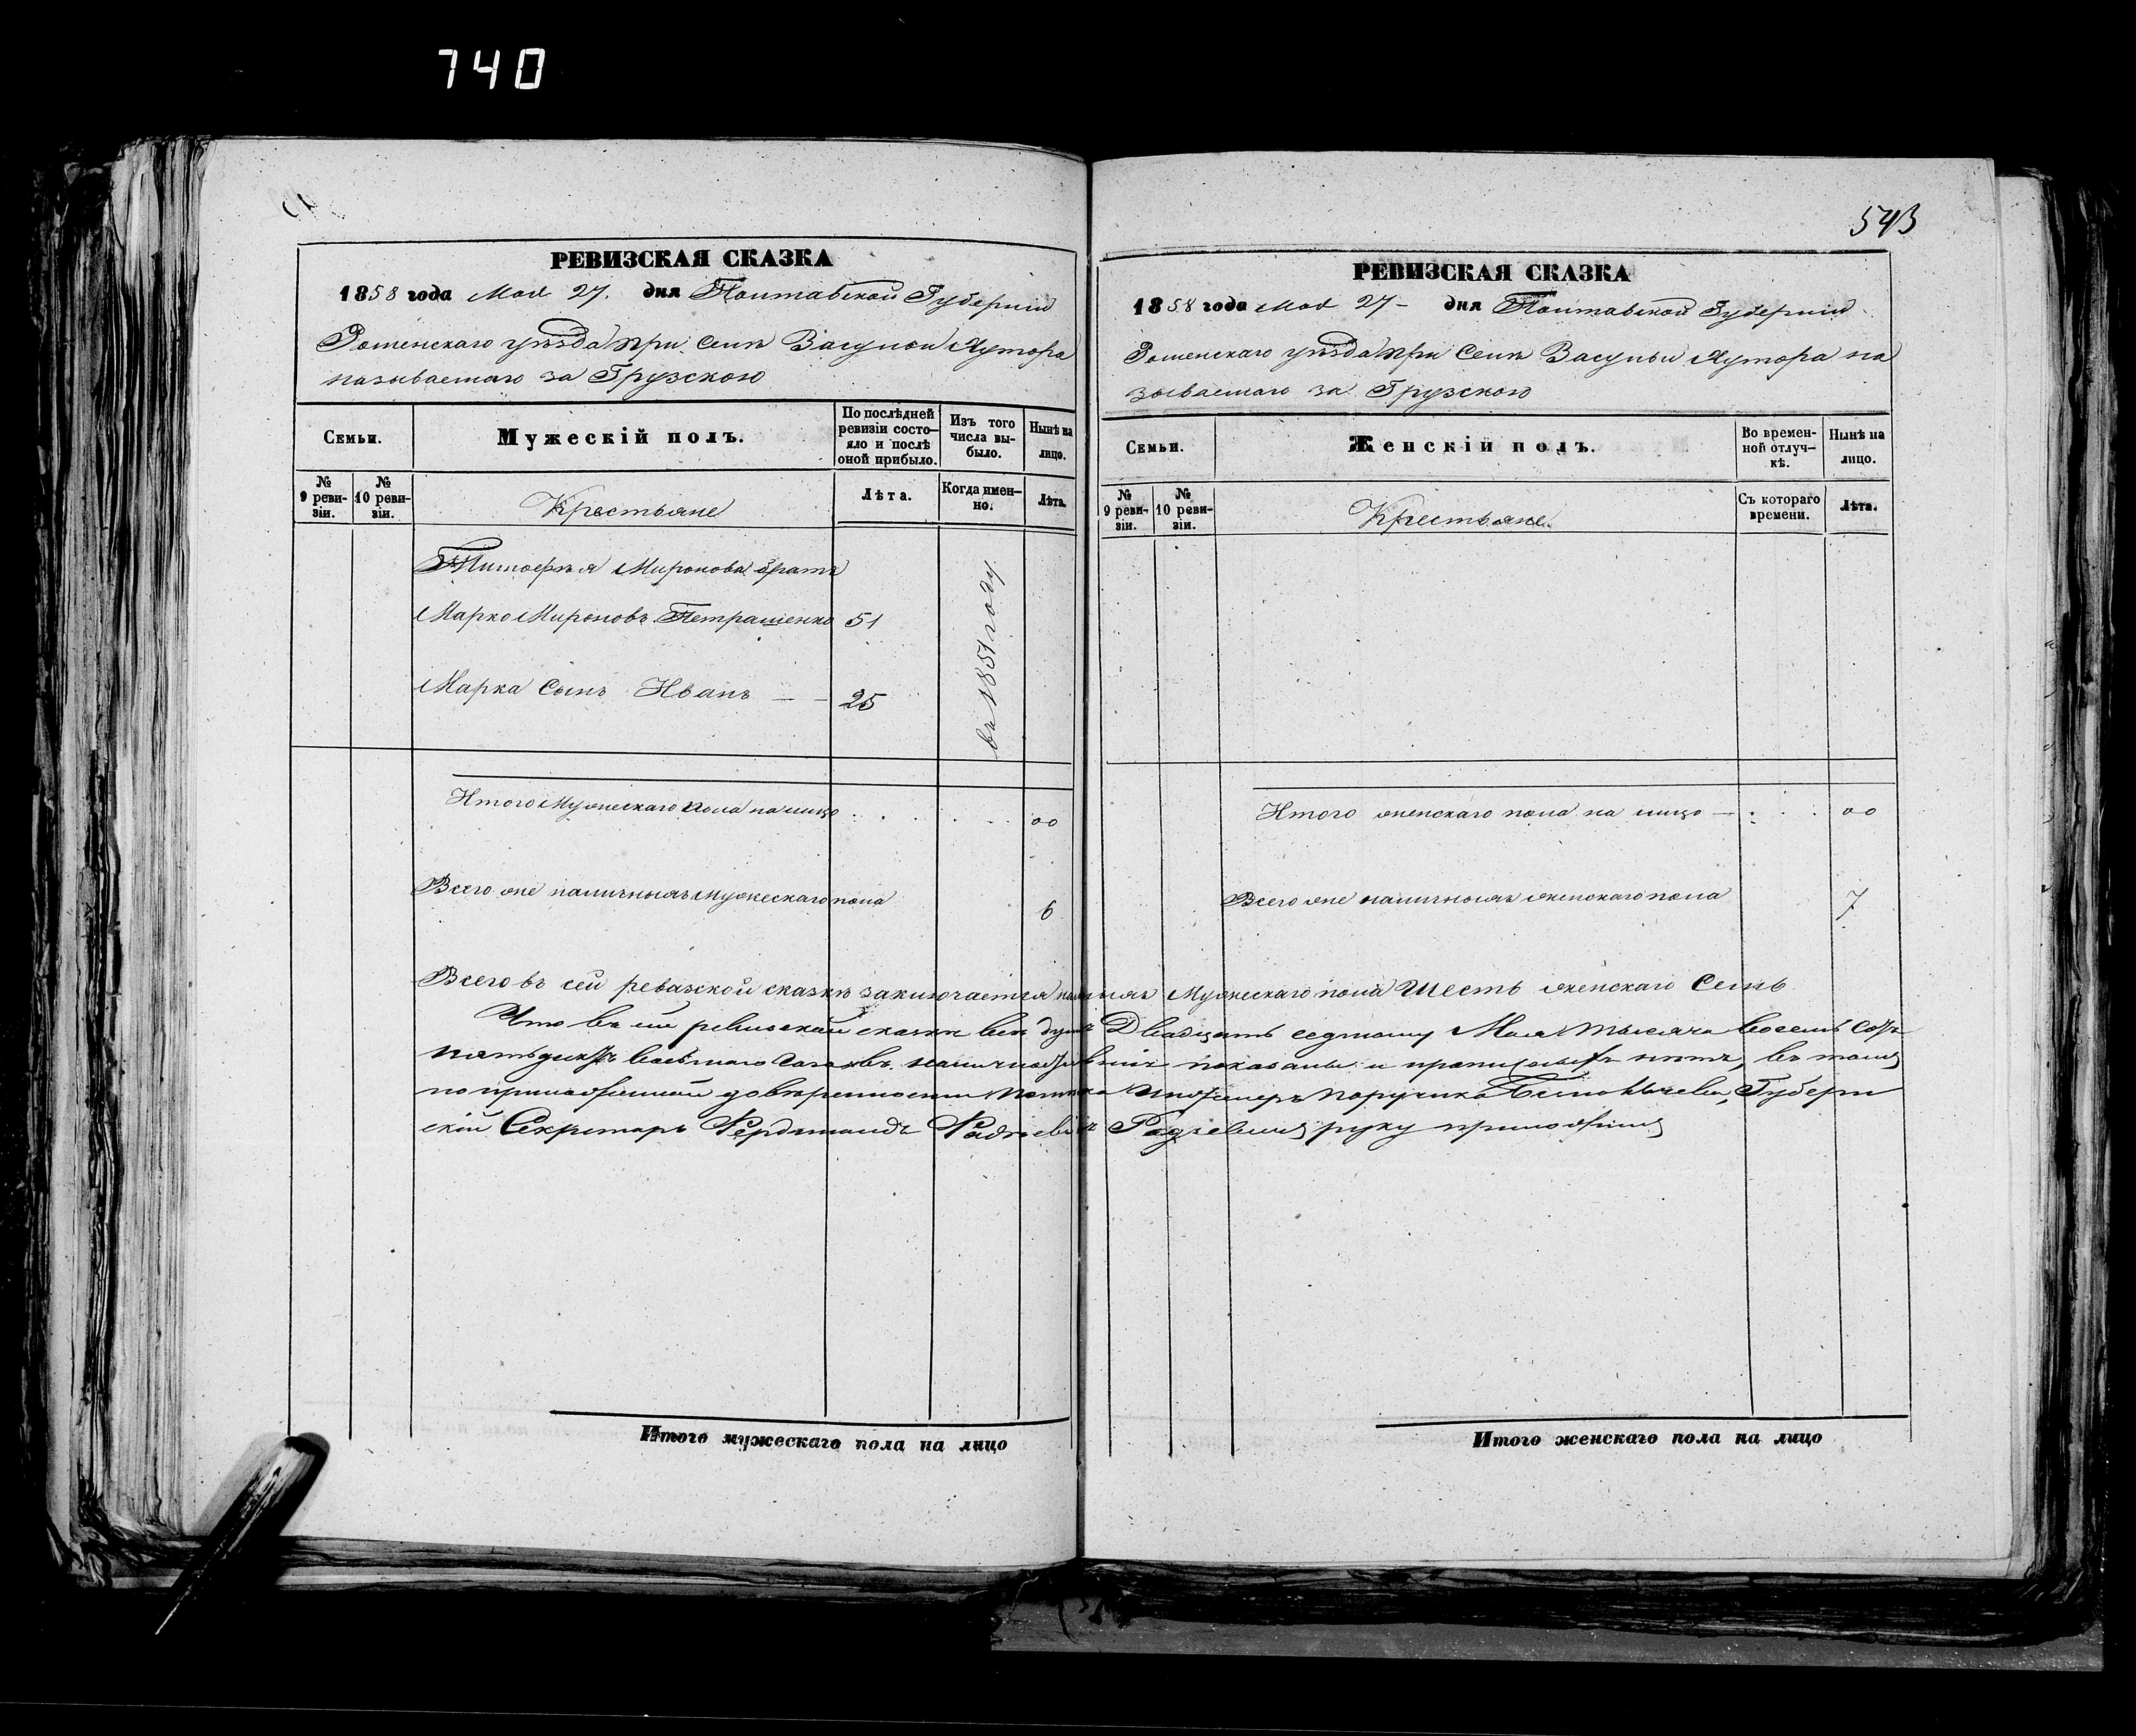 740
РЕВИЗСКАЯ СКАЗКА
1858 года Мая 27. дня Полтавской Губерніи
Роменскаго уѣзда при селѣ Васуліи Хутора
называемаго за Грузскою
Семьи.
Мужескій полъ.
По послѣдней ревизіи состо-
яло и послѣ
оной прибыло.
Изъ того
числа вы-
было.
Нынѣ на
лицо.
№
9 реви-
зіи.
№
10 реви-
зіи.
Крестьяне
Лѣта.
Когда имен-
но.
Лѣта.
Тимофѣя Миронова братъ
Марко Мироновъ Петрашенко 51
Марка Сынъ Иванъ — — 25
въ 1851 году.
Итого Мужескаго пола на лицо . . . . . 00
Всего же наличныхъ Мужескаго пола 6
543
РЕВИЗСКАЯ СКАЗКА
1858 года Мая 27 - дня Полтавской Губерніи
Роменскаго уѣзда при селѣ Хутора на
зываемаго за Грузскою
Семьи.
Женскій полъ.
Во времен-
ной отлуч-
кѣ.
Нынѣ на
лицо.
№
9 реви-
зіи.
№
10 реви-
зіи.
Крестьяне.
Съ котораго
времени.
Лѣта.
Итого женскаго пола на лицо — . . . 00
Всего же наличныхъ женскаго пола 7
Всего въ сей ревизской сказкѣ заключается Мужескаго пола Шесть женскаго Семь
Что въ сей ревизской сказкѣ всѣ души Двадцать седьмому Мая тысяча восемь сотъ
пятьдесятъ восьмаго показаны и прописныхъ нѣтъ, въ томъ
по приложенной довѣренности Инженеръ Поручика Губерн
скій Секретарь Фердинандъ руку приложилъ
Итого мужескаго пола на лицо
Итого женскаго пола на лицо